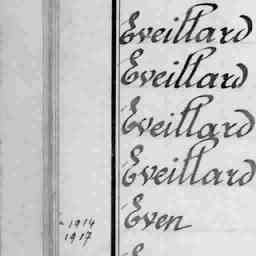 Eveillard
Eveillard
Eveillard
Eveillard
- 1914
1917
Even